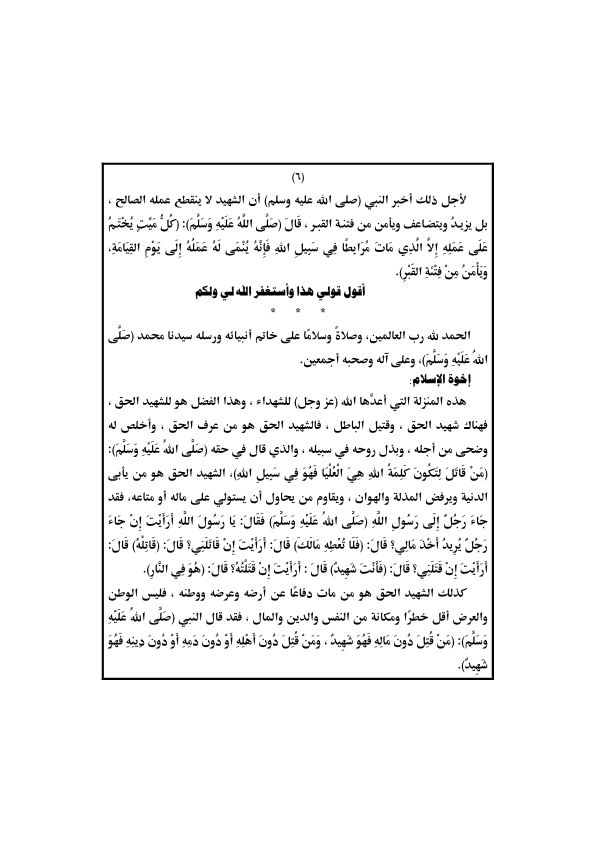 (٦)
لأجل ذلك أخبر النبي (صلى الله عليه وسلم) أن الشهيد لا ينقطع عمله الصالح ،
بل يزيدُ ويتضاعف ويأمن من فتنة القبر ، قَالَ (صَلَّى اللَّهُ عَلَيْهِ وَسَلَّمَ): (كُلُّ مَيِّتٍ يُخْتَمُ
عَلَى عَمَلِهِ إِلاَّ الَّذِي مَاتَ مُرَابِطًا فِي سَبِيلِ اللهِ فَإِنَّهُ يُنْمَى لَهُ عَمَلُهُ إِلَى يَوْمِ القِيَامَةِ،
وَيَأْمَنُ مِنْ فِتْنَةِ القَبْرِ).
أقول قولي هذا وأستغفر الله لي ولكم
* * *
الحمد لله رب العالمين، وصلاةً وسلامًا على خاتم أنبيائه ورسله سيدنا محمد (صَلَّى
اللهُ عَلَيْهِ وَسَلَّمَ)، وعلى آله وصحبه أجمعين.
إخوة الإسلام:
هذه المنزلة التي أعدَّها الله (عز وجل) للشهداء ، وهذا الفضل هو للشهيد الحق ،
فهناك شهيد الحق ، وقتيل الباطل ، فالشهيد الحق هو من عرف الحق ، وأخلص له
وضحى من أجله ، وبذل روحه في سبيله ، والذي قال في حقه (صَلَّى اللهُ عَلَيْهِ وَسَلَّمَ):
(مَنْ قَاتَلَ لِتَكُونَ كَلِمَةُ اللهِ هِيَ الْعُلْيَا فَهُوَ فِي سَبِيلِ اللهِ)، الشهيد الحق هو من يأبى
الدنية ويرفض المذلة والهوان ، ويقاوم من يحاول أن يستولي على ماله أو متاعه، فقد
جَاءَ رَجُلٌ إِلَى رَسُولِ اللَّهِ (صَلَّى اللهُ عَلَيْهِ وَسَلَّمَ) فَقَالَ: يَا رَسُولَ اللَّهِ أَرَأَيْتَ إِنْ جَاءَ
رَجُلٌ يُرِيدُ أَخْذَ مَالِي؟ قَالَ: (فَلَا تُعْطِهِ مَالَكَ) قَالَ: أَرَأَيْتَ إِنْ قَاتَلَنِي؟ قَالَ: (قَاتِلْهُ) قَالَ:
أَرَأَيْتَ إِنْ قَتَلَنِي؟ قَالَ: (فَأَنْتَ شَهِيدٌ) قَالَ : أَرَأَيْتَ إِنْ قَتَلْتُهُ؟ قَالَ: (هُوَ فِي النَّارِ).
كذلك الشهيد الحق هو من مات دفاعًا عن أرضه وعرضه ووطنه ، فليس الوطن
والعرض أقل خطرًا ومكانة من النفس والدين والمال ، فقد قال النبي (صَلَّى اللهُ عَلَيْهِ
وَسَلَّمَ): (مَنْ قُتِلَ دُونَ مَالِهِ فَهُوَ شَهِيدٌ ، وَمَنْ قُتِلَ دُونَ أَهْلِهِ أَوْ دُونَ دَمِهِ أَوْ دُونَ دِينِهِ فَهُوَ
شَهِيدٌ).